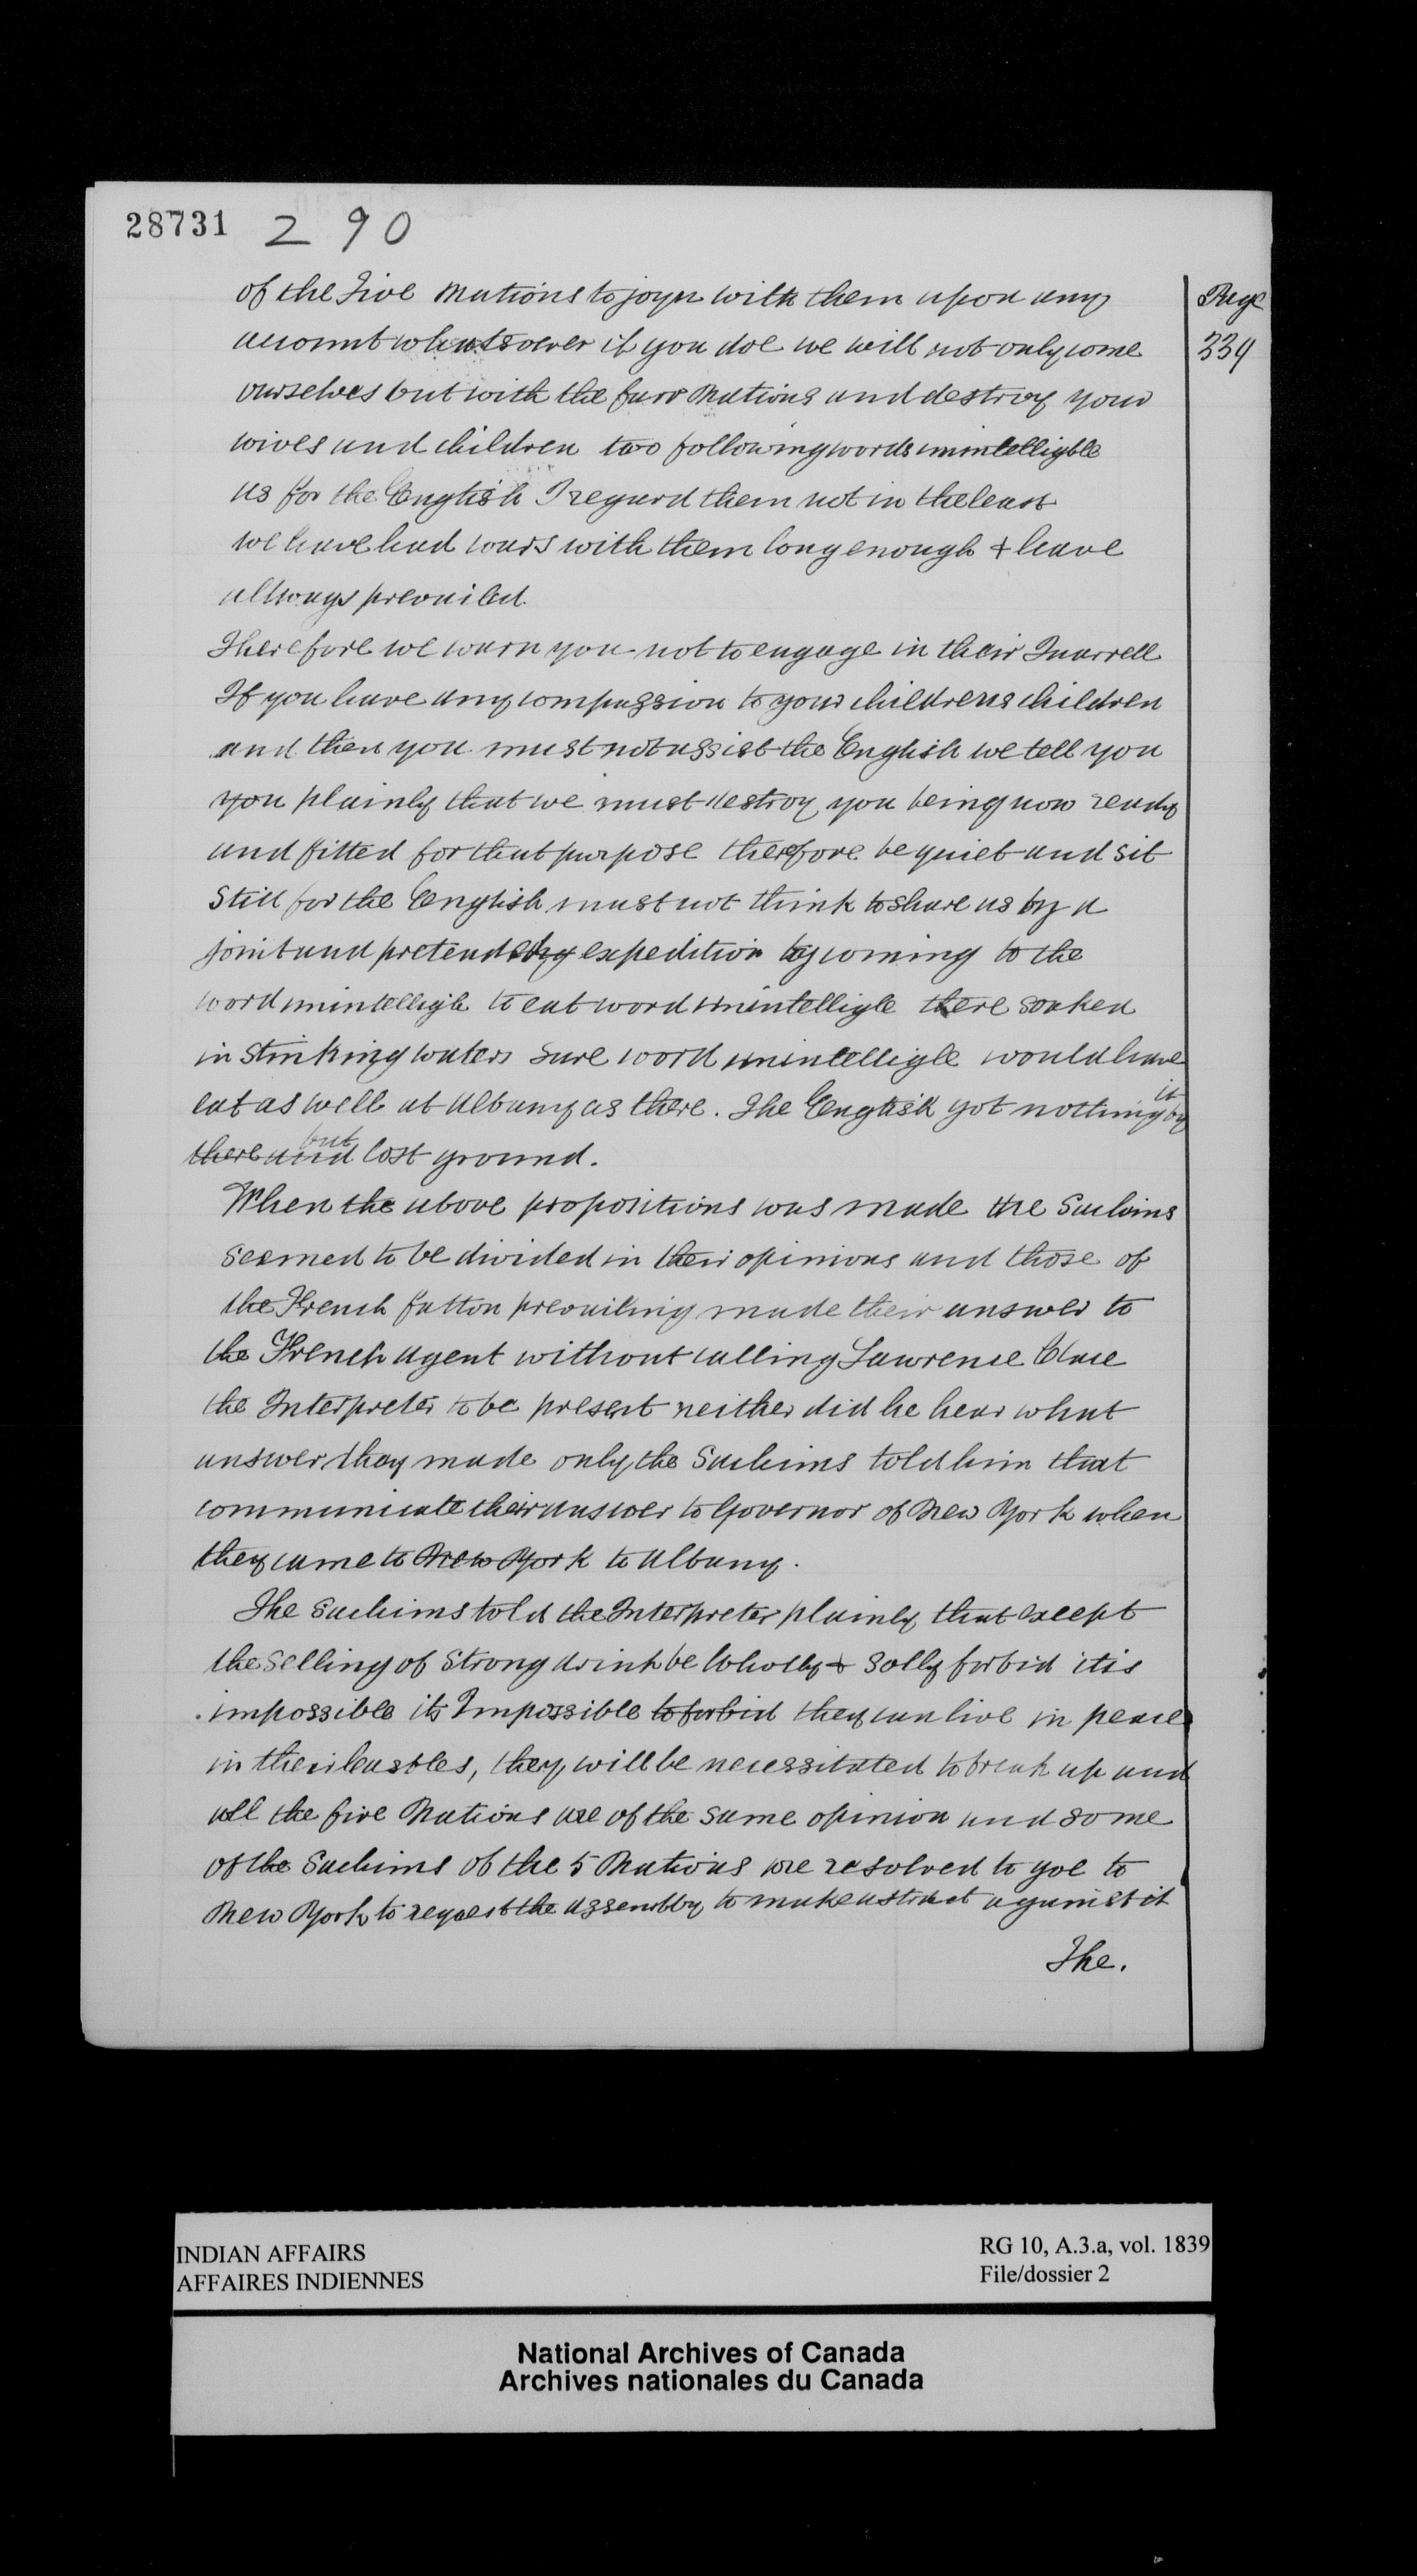 28731 290
Page
334
of the Five Nations to joyn with them upon any
account whatsoever if you doe we will not only come
ourselves but with the farr Nations and destroy your
wives and children two following words unintelligble
us for the English I regard them not in the least
we have had wars with them long enough & have
allways prevailed.
Therefore we warn you not to engage in their Quarrell
If you have any compassion to your childrens children
and then you must not assist the English we tell you
you plainly that we must destroy you being now ready
and fitted for that purpose therefore be quiet and sit
still for the English must not think to share us by a
joint and pretended expedition by coming to the
word unintelligle to eat word unintelligle there soaked
in stinking waters sure word unintelligle would have
eat as well at Albany as there. The English got nothing by it
there and but lost ground.
When the above propositions was made the Sachims
seemed to be divided in their opinions and those of
the French fatton prevailing made their answer to
the French agent without calling Lawrence Clase
the Interpreter to be present neither did he hear what
answer they made only the Sachims told him that
communicate their answer to Governor of New York when
they came to New York to Albany.
The Sachims told the Interpreter plainly that except
the selling of strong drink be wholly & solly forbid itis
impossible its Impossible to forbid they can live in peace
in their castles, they will be necessitated to break up and
all the five Nations are of the same opinion and some
of the Sachims of the 5 Nations are resolved to goe to
New York to reqest the assembly to make a strict against it
The.
INDIAN AFFAIRS
AFFAIRES INDIENNES
RG 10, A.3.a, vol. 1839
File/dossier 2
National Archives of Canada
Archives nationales du Canada